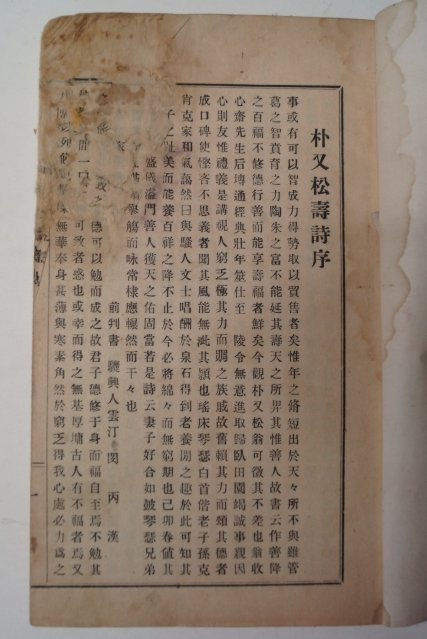 朴又松壽詩序
事或有可以智或力得勢取以買售者矣惟年之脩短出於天々所不與雖管
葛之智賁育之力陶朱之富不能延其壽天之所畀其惟善人故書云作善降
之百福不修德行善而能享壽福者鮮矣今觀朴又松翁可徵其不差也翁收
心齋先生后埤通經典壯年筮仕至 陵令無意進取歸臥田園竭誠事親因
心則友惟禮義是講視人窮乏極其力而賙之族戚故舊賴其力而頌其德者
成口碑使慳吝不思義者聞其風能無泚其顙也瑤床琴瑟白首偕老子孫克
肯克家和氣藹然曰與騷人文士唱酬於泉石得到老養閒之趣於此可知其
子之趾美而能養百祥之降不止於今必將綿々而無窮期也己卯春値其
盛戚溢門善人獲天之佑固當若是詩云妻子好合如皷琴瑟兄弟
觴而咏常棣應囅然而干々也
前判書 驪興人雲汀 閔丙漢
德可以勉而成之故君子德修于身而福自至焉不勉其
可致者惑也或幸而得之無基厚墉古人有不福者焉又
無華奉身甚薄與寒素角然於窮乏得我心處必力爲之
一